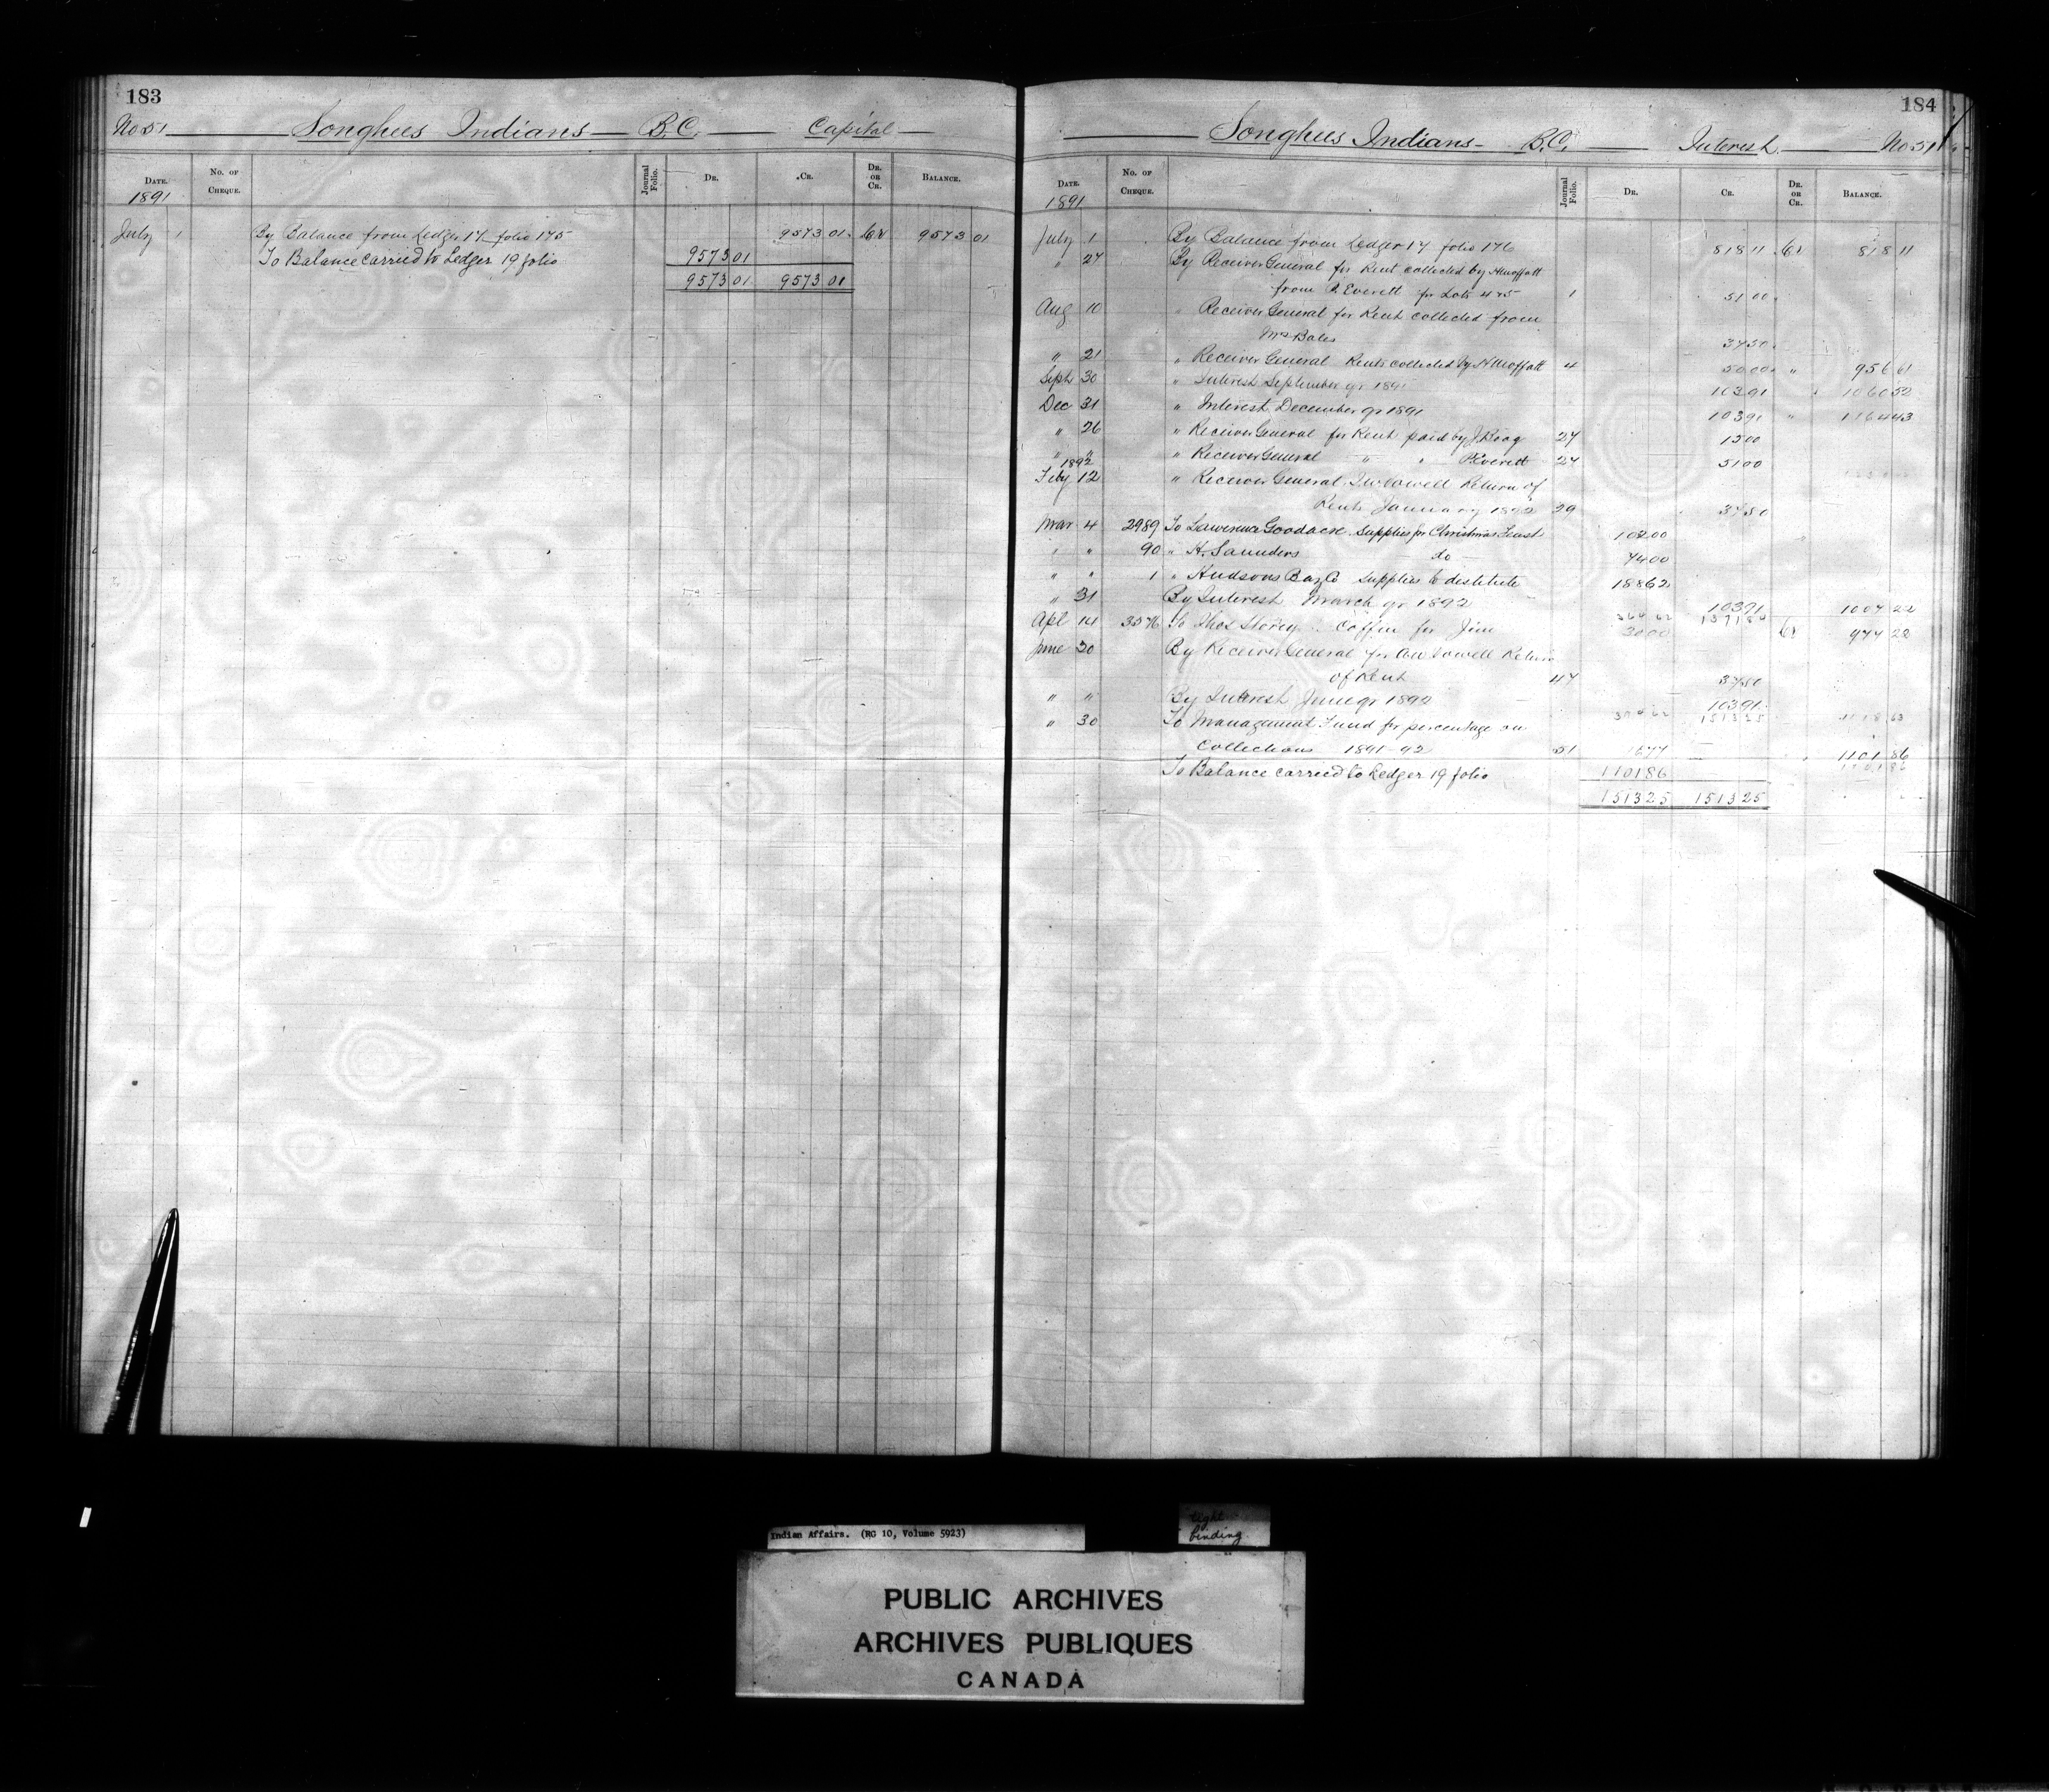 183
No 51 Songhees Indians B.C. Capital
DATE. No. OF CHEQUE. Journal Folio. DR. CR. DR. OR CR. BALANCE.
1891
July 1 By Balance from Ledger 17 folio 175 9573 01 Cr 9573 01
To Balance carried to Ledger 19 folio 9573 01
9573 01 9573 01
184
Songhees Indians B.C. Interest No 51
DATE. No. OF CHEQUE. Journal Folio. DR. CR. DR. OR CR. BALANCE.
1891
July 1 By Balance from Ledger 17 folio 176 818 11 Cr 818 11
" 27 By Receiver General for Rent collected by H Moffatt
from P. Everett for Lots 4 & 5 1 51 00
Aug 10 " Receiver General for Rent collected from
Mrs Bales 37 50
" 21 " Receiver General Rents collected by H Moffatt 4 50 00 " 956 61
Sept 30 " Interest September qr 1891 103 91 1060 52
Dec 31 " Interest December qr 1891 103 91 " 1164 43
" 26 " Receiver General for Rent paid by J. 27 15 00
" " " Receiver General " " P. Everett 27 51 00
1892
Feby 12 " Receiver General Vowell Return of
Rents January 1892 29 37 50
Mar 4 2989 To Lawrence Goodacre Supplies for Christmas Feast 102 00
" " 90 " H. Saunders do 74 00
" " 1 " Hudsons Bay Co Supplies to destitute 188 62
" 31 By Interest March qr 1892 103 91 1007 22
364 62 1371 84
Apl 14 3576 To Thos Storey Coffin for Jim 30 00 Cr 977 22
June 30 By Receiver General for A W Vowell Return
of Rent 47 37 50
" " By Interest June qr 1892 103 91
394 62 1513 25 1118 63
" 30 To Management Fund for percentage on
Collections 1891-92 51 16 77 1101 86
1101 86
To Balance carried to Ledger 19 folio 1101 86
1513 25 1513 25
Indian Affairs. (RG 10, Volume 5923)
tight
binding
PUBLIC ARCHIVES
ARCHIVES PUBLIQUES
CANADA